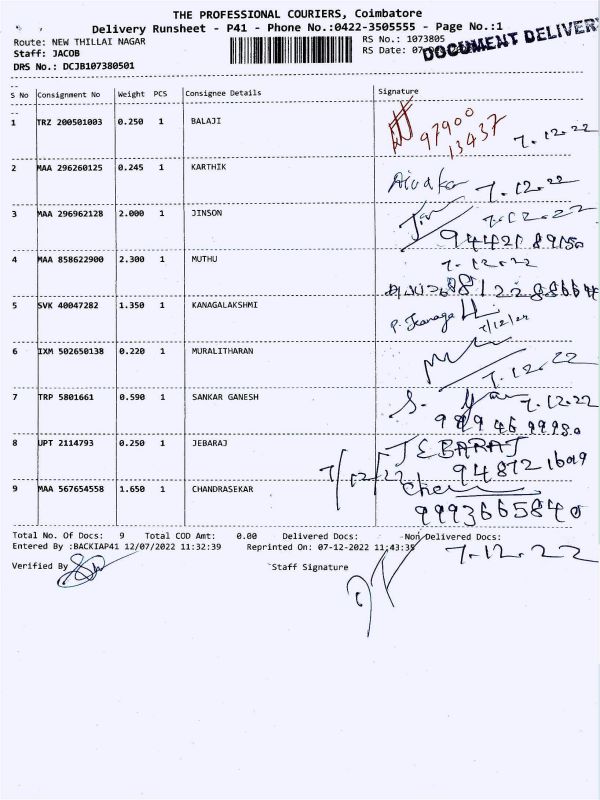 THE PROFESSIONAL COURIERS, Coimbatore
Delivery Runsheet - P41 - Phone No.:0422-3505555 - Page No.:1
Route: NEW THILLAI NAGAR RS No.: 1073805
Staff: JACOB RS Date: 07-
DRS No.: DCJB107380501
DOCUMENT DELIVER
S No Consignment No Weight PCS Consignee Details Signature
1 TRZ 200501003 0.250 1 BALAJI
97900
13437 7.12.22
2 MAA 296260125 0.245 1 KARTHIK
7.12.22
3 MAA 296962128 2.000 1 JINSON
7.12.22
4 MAA 858622900 2.300 1 MUTHU
7.12.22
5 SVK 40047282 1.350 1 KANAGALAKSHMI
P. Kanaga
7/12/22
6 IXM 502650138 0.220 1 MURALITHARAN
7.12.22
7 TRP 5801661 0.590 1 SANKAR GANESH
S. 7.12.22
8 UPT 2114793 0.250 1 JEBARAJ
JEBARAJ
7/12/22
9 MAA 567654558 1.650 1 CHANDRASEKAR
9993665840
Total No. Of Docs: 9 Total COD Amt: 0.00 Delivered Docs: Non Delivered Docs:
Entered By :BACKIAP41 12/07/2022 11:32:39 Reprinted On: 07-12-2022 11:43:35
7.12.22
Verified By Staff Signature